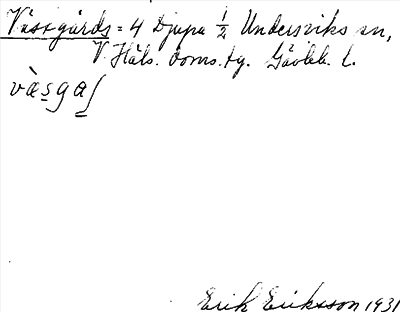 Västgårds = 4 Djupa 1/2 Undersviks sn,
V. Häls. doms. tg. Gävleb. l.
vàsgaʃ
Erik Eriksson 1931